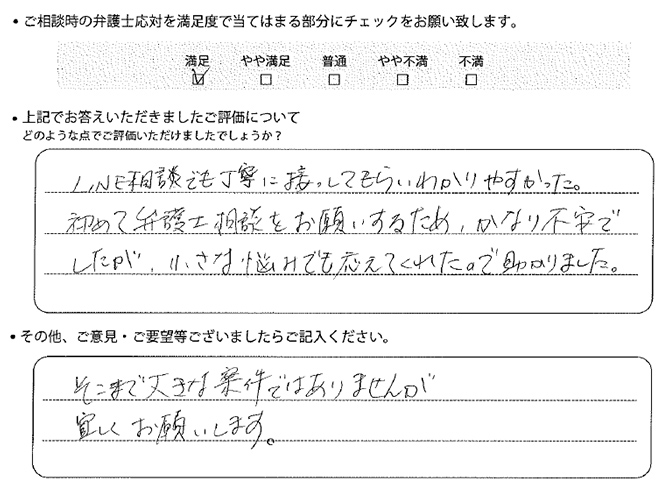 ・ご相談時の弁護士応対を満足度で当てはまる部分にチェックをお願い致します。
満足 やや満足 普通 やや不満 不満
・上記でお答えいただきましたご評価について
どのような点でご評価いただけましたでしょうか？
LINE相談でも丁寧に接っしてもらいわかりやすかった。
初めて弁護士相談をお願いするため、かなり不安で
したが、小さな悩みでも応えてくれたので助かりました。
・その他、ご意見・ご要望等ございましたらご記入ください。
そこまで大きな案件ではありませんが
宜しくお願いします。